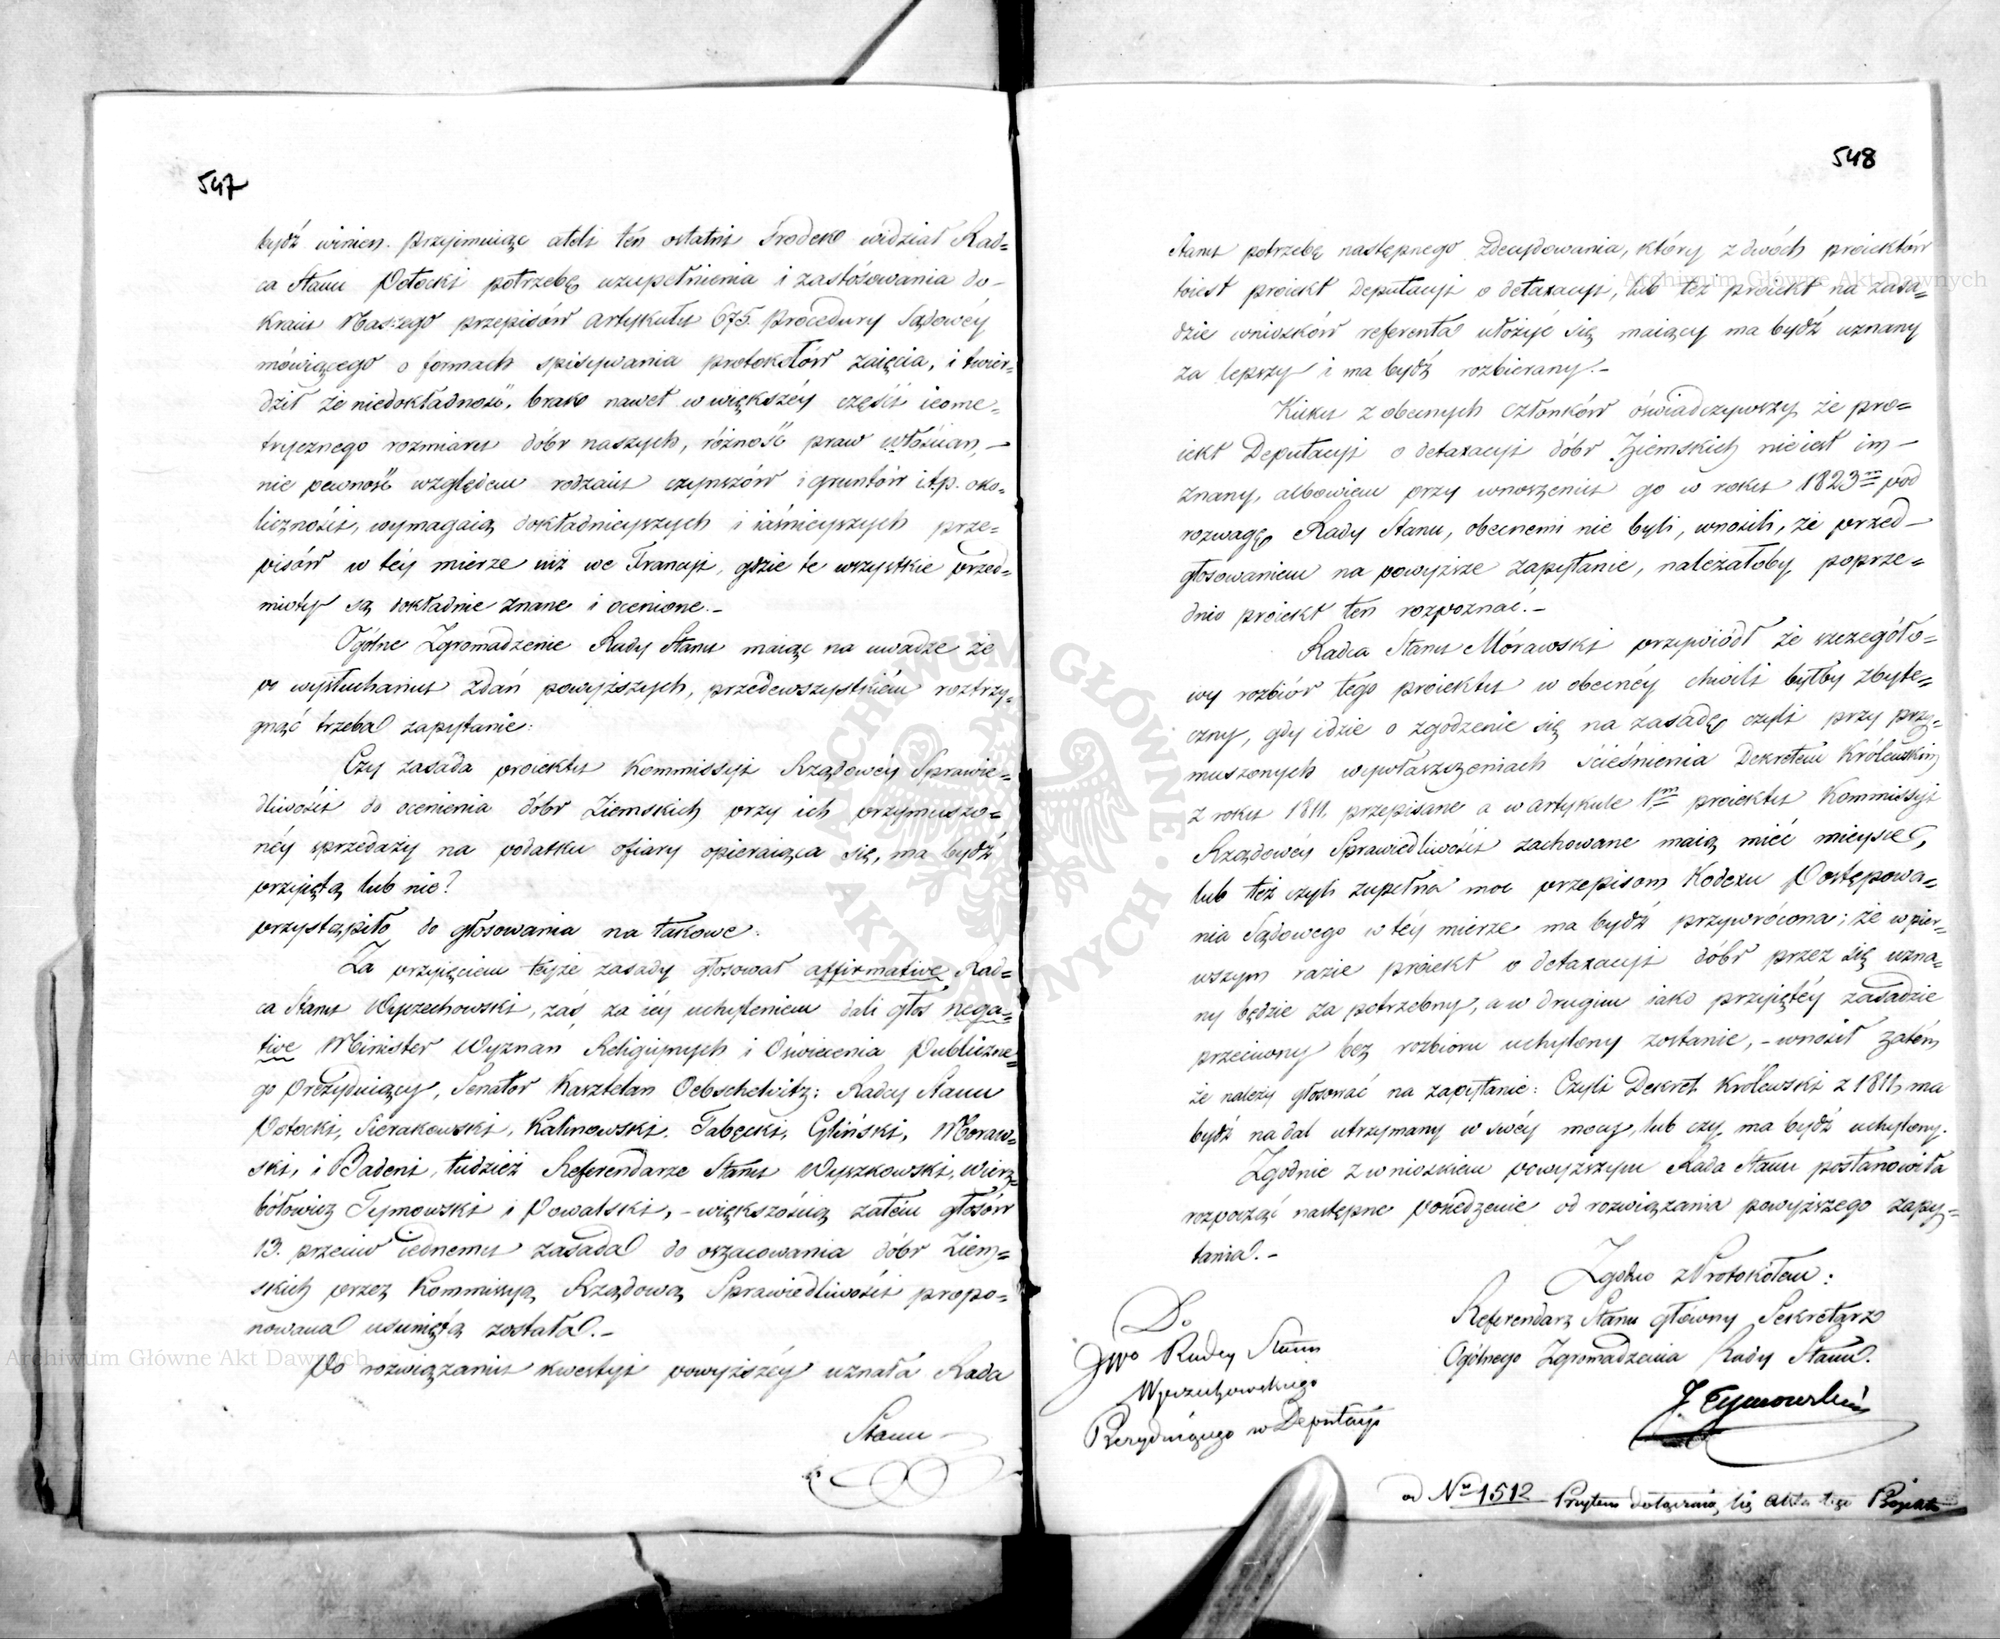 547
bydź winien. przyimuiąc atoli ten ostatni Srodek widział Rad=
ca Stanu Potocki potrzebę uzupełnienia i zastosowania do-
Kraiu Naszego przepisów Artykułu 675. Procedury Sądowéy
mówiącego o formach spisywania protokołów zaięcia, i twier-
dził że niedokładność, brak nawet w większéy części ieome-
trycznego rozmiaru dóbr naszych, różność praw włościan,-
nie pewność względem rodzaiu czynszów i gruntów i t.p. oko-
liczności, wymagaią dokładnieyszych i iaśnieyszych prze-
pisów w téy mierze niż we Francyi, gdzie te wszystkie przed-
mioty są dokładnie znane i ocenione.-
Ogólne Zgromadzenie Rady Stanu maiąc na uwadze że
po wysłuchaniu zdań powyższych, przedewszystkiém roztrzy-
gnąć trzeba zapytanie:
Czy zasada proiektu Kommissyi Rządowéy Sprawie-
dliwości do ocenienia dóbr Ziemskich przy ich przymuszo-
néy sprzedaży na podatku ofiary opieraiąca się, ma bydź
przyiętą lub nie?
przystąpiło do głosowania na takowe:
Za przyięciem téyże zasady głosował affirmative Rad=
ca Stanu Wyczechowski, zaś za iéy uchyleniem dali głos nega=
tive Minister Wyznań Religiynych i Oświecenia Publiczne=
go Prezyduiący, Senator Kasztelan Oebschelwitz; Radcy Stanu
Potocki, Sierakowski, Kalinowski, Tabęcki, Gliński, Moraw=
ski, i Badeni, tudzież Referendarze Stanu Wyszkowski, Wierz=
bołowicz Tymowski i Powalski,- większością zatem głosów
13. przeciw iednemu zasada do oszacowania dóbr Ziem=
skich przez Kommissyą Rządową Sprawiedliwości propo=
nowana usuniętą została.-
Po rozwiązaniu kwestyi powyższéy uznała Rada
Stanu
548
Stanu potrzebę następnego zdecydowania, który z dwóch proiektów
toiest proiekt Deputacyi o detaxacyi, lub też proiekt na zasa=
dzie wniosków referenta ułożyć się maiący ma bydź uznany
za lepszy i ma bydź rozbierany.-
Kilku z obecnych Członków oświadczywszy że pro=
iekt Deputacyi o detaxacyi dóbr Ziemskich nie iest im-
znany, albowiem przy wnoszeniu go w roku 1823m pod
rozwagę Rady Stanu, obecnemi nie byli, wnosili, że przed-
głosowaniem na powyższe zapytanie, należałoby poprze=
dnio proiekt ten rozpoznać.-
Radca Stanu Morawski przywiódł że szczegóło=
wy rozbiór tego proiektu w obecnéy chwili byłby zbyte=
czny, gdy idzie o zgodzenie się na zasadę czyli przy przy=
muszonych wywłaszczeniach ścieśnienia Dekretem Królewskim
z roku 1811. przepisane a w artykule 1m proiektu Kommissyi
Rządowéy Sprawiedliwości zachowane maią mieć mieysce,
lub też czyli zupełna moc przepisom Kodexu Postępowa=
nia Sądowego w téy mierze ma bydź przywrócona; że w pier=
wszym razie proiekt o detaxacyi dóbr przez się uzna=
ny będzie za potrzebny, a w drugim iako przyiętéy zasadzie
przeciwny bez rozbioru uchylony zostanie,- wnosił zatém
że należy głosować na zapytanie: Czyli Dekret Królewski z 1811, ma
bydź nadal utrzymany w swéy mocy, lub czy ma bydź uchylony.
Zgodnie z wnioskiem powyższym Rada Stanu postanowiła
rozpocząć następne posiedzenie od rozwiązania powyższego zapy=
tania.-
Zgodno z Protokółem:
Referendarz Stanu główny Sekretarz
Ogólnego Zgromadzenia Rady Stanu.
J Tymowski
Do
JWo Radcy Stanu
Wyczechowskiego
Prezyduiącego w Deputacyi
od No 1512 Przytem dołączaią się akta tego Proiektu
Archiwum Główne Akt Dawnych
Archiwum Główne Akt Dawnych
ARCHIWUM GŁÓWNE AKT DAWNYCH